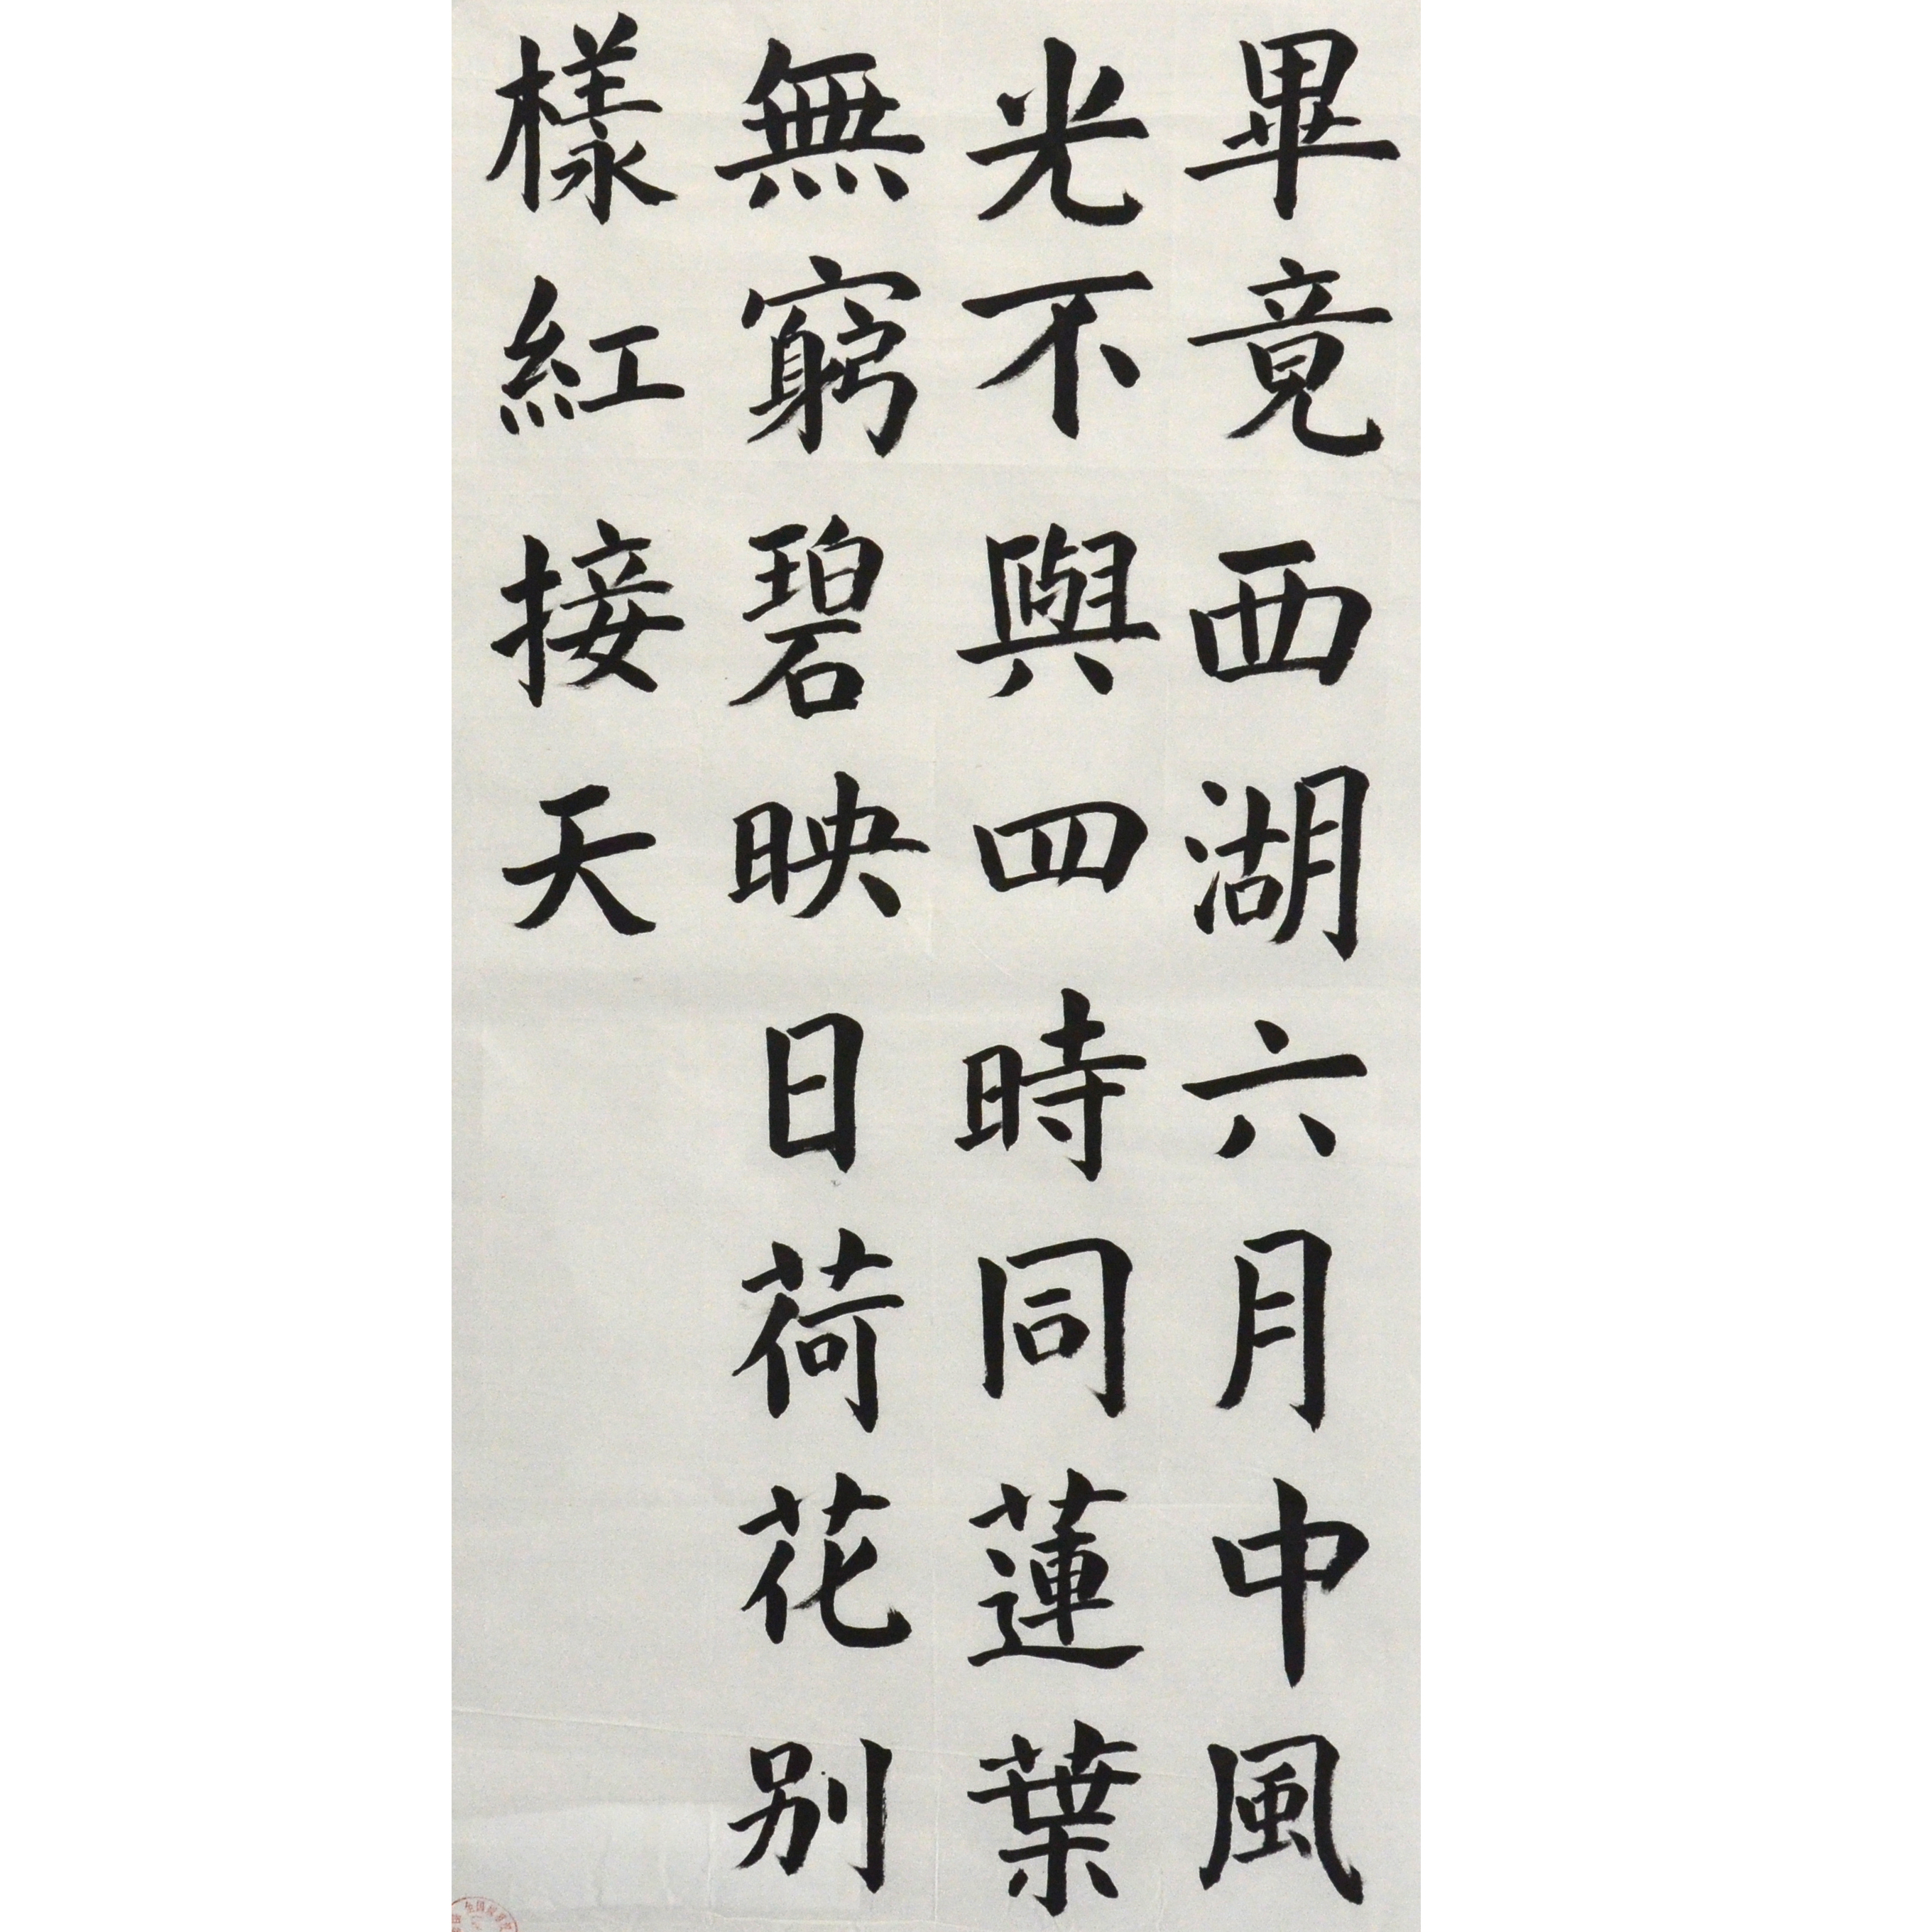 畢竟西湖六月中風
光不與四時同蓮葉
無窮碧映日荷花别
樣紅接天